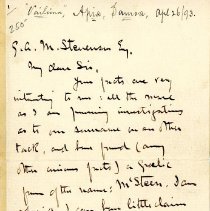 Vailima, Apia, Samoa, Apl 26/93.
250
G. A. M. Stevenson Esq.
My dear Sir,
Your facts are very
interesting to me all the more
as I am pursuing investigations
as to our surname on another
tack, and have found (among
other curious facts) a Gaelic
form of the name: McSteen. I am
I can but little claim